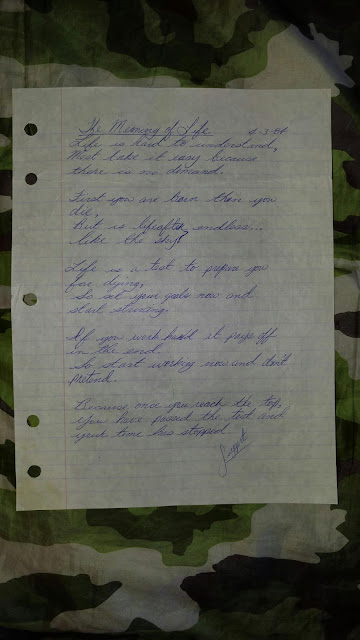 The Meaning of Life 4-3-84
Life is hard to understand,
Most take it easy because
there is no demand.
First you are born then you
die,
But is lifeafter endless...
like the sky?
Life is a test to prepare you
for dying,
So set your goals now and
start striving.
If you work hard it pays off
in the end.
So start working now and don't
pretend.
Because once you reach the top,
you have passed the test and
your time has stopped